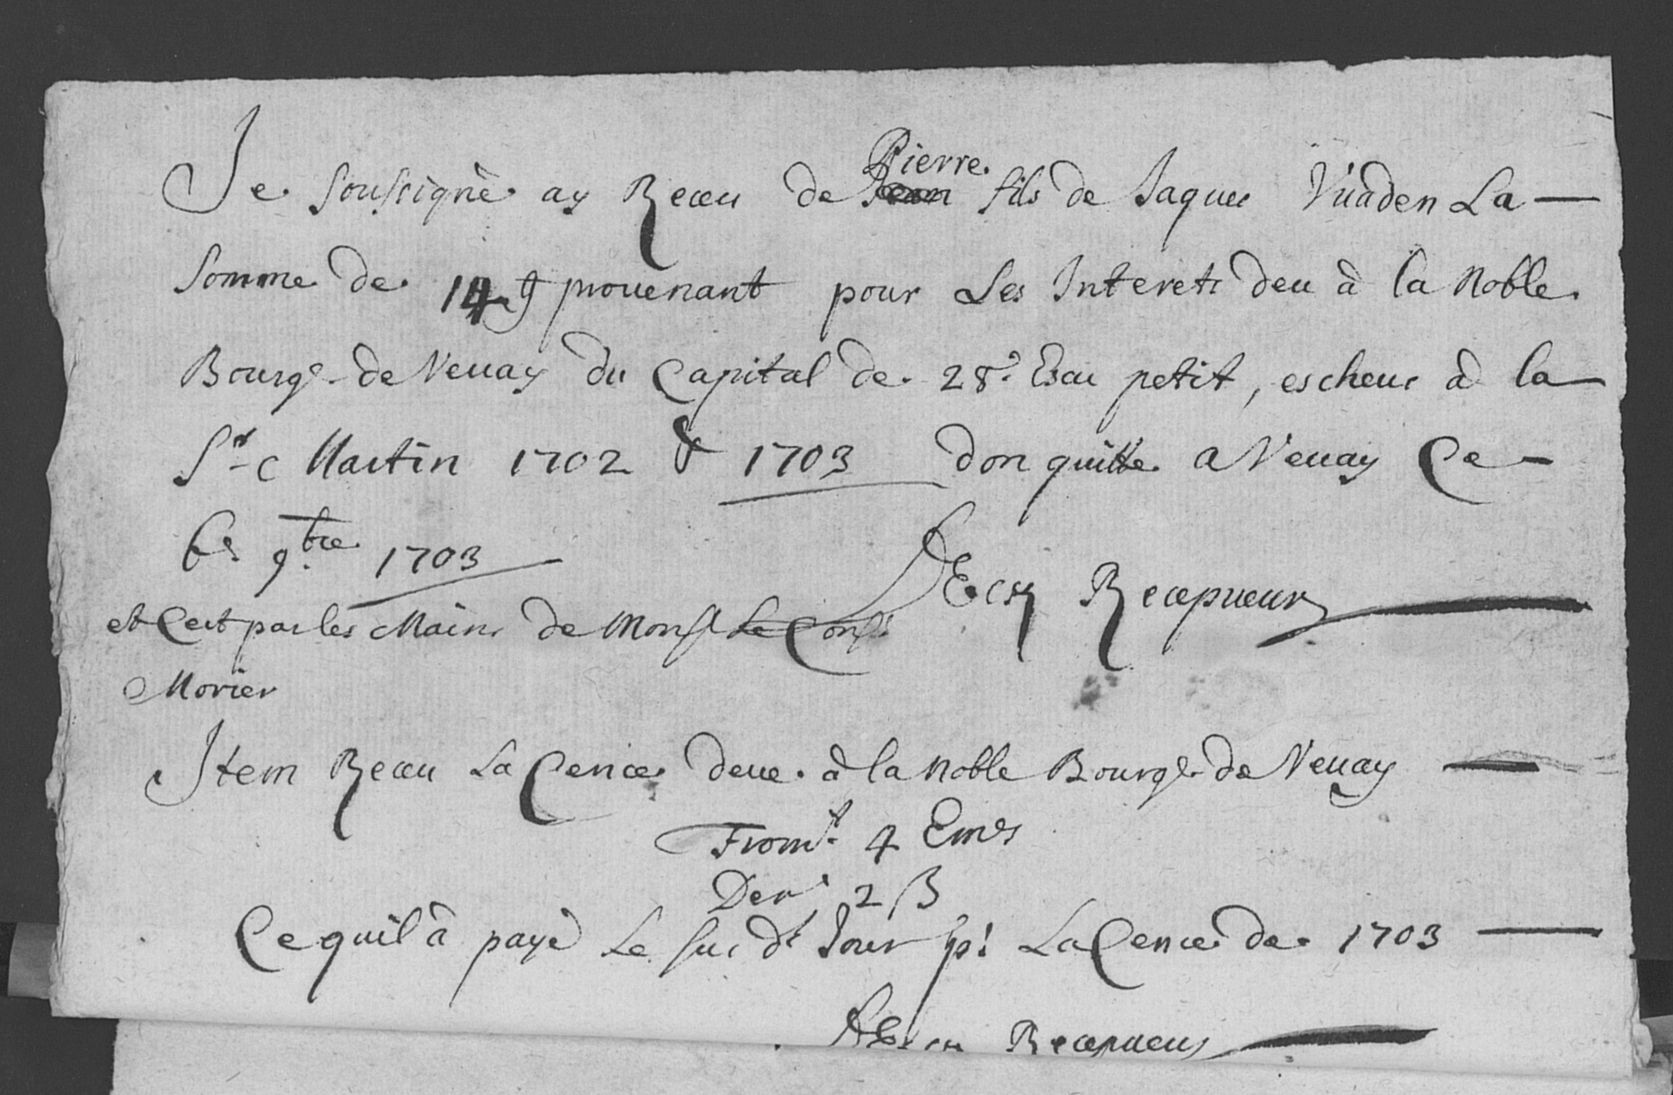 Pierre
Je soussignè ay Receu de Jean fils de Jaques Vuaden La —
somme de 14 provenant pour Les Interets deu à la Noble
Bourgs. de Vevay du Capital de 28. Escu petit, escheus à la
St. Martin 1702 & 1703 don quitte a Vevay Ce —
6e 9bre 1703
Recepveur
et C'est par les Mains de Mons.r Le Cons.r
Morier
Item Receu La Cence deue à la Noble Bourgs. de Vevay —
From.t 4 Em.s
Den.s 2 ß
Ce quil à payé Le sus d.t Jour p.r La Cence de 1703 —
Recepveur